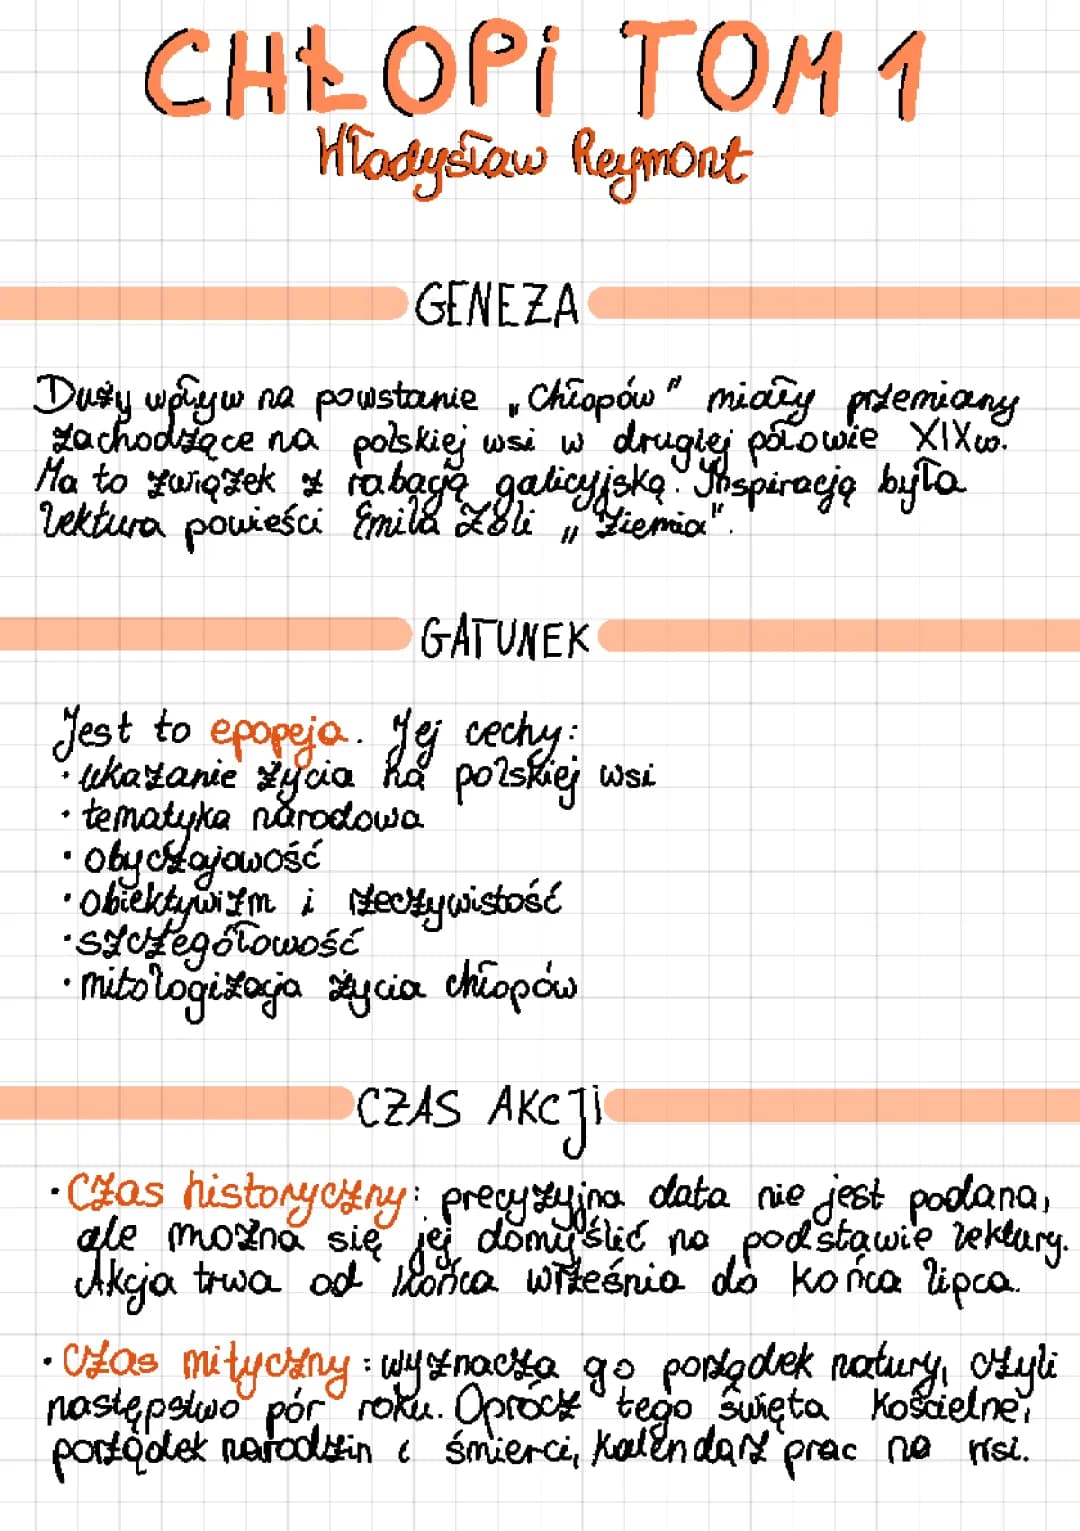 CHŁOPi TOM 1
Władysław Reymont
GENEZA
Duży wpływ na powstanie „Chłopów" miały przemiany
zachodzące na polskiej wsi w drugiej połowie XIXw.
Ma to związek z rabacją galicyjską. Inspiracją była
lektura powieści Emila Zoli „Ziemia".
GATUNEK
Jest to epopeja. Jej cechy:
• ukazanie życia na polskiej wsi
• tematyka narodowa
• obyczajowość
• obiektywizm i rzeczywistość
• szczegółowość
• mitologizacja życia chłopów
CZAS AKCJi
• Czas historyczny: precyzyjna data nie jest podana,
ale można się jej domyślić na podstawie lektury.
Akcja trwa od końca września do końca lipca.
• Czas mityczny: wyznacza go porządek natury, czyli
następstwo pór roku. Oprócz tego święta kościelne,
porządek narodzin i śmierci, kalendarz prac na wsi.